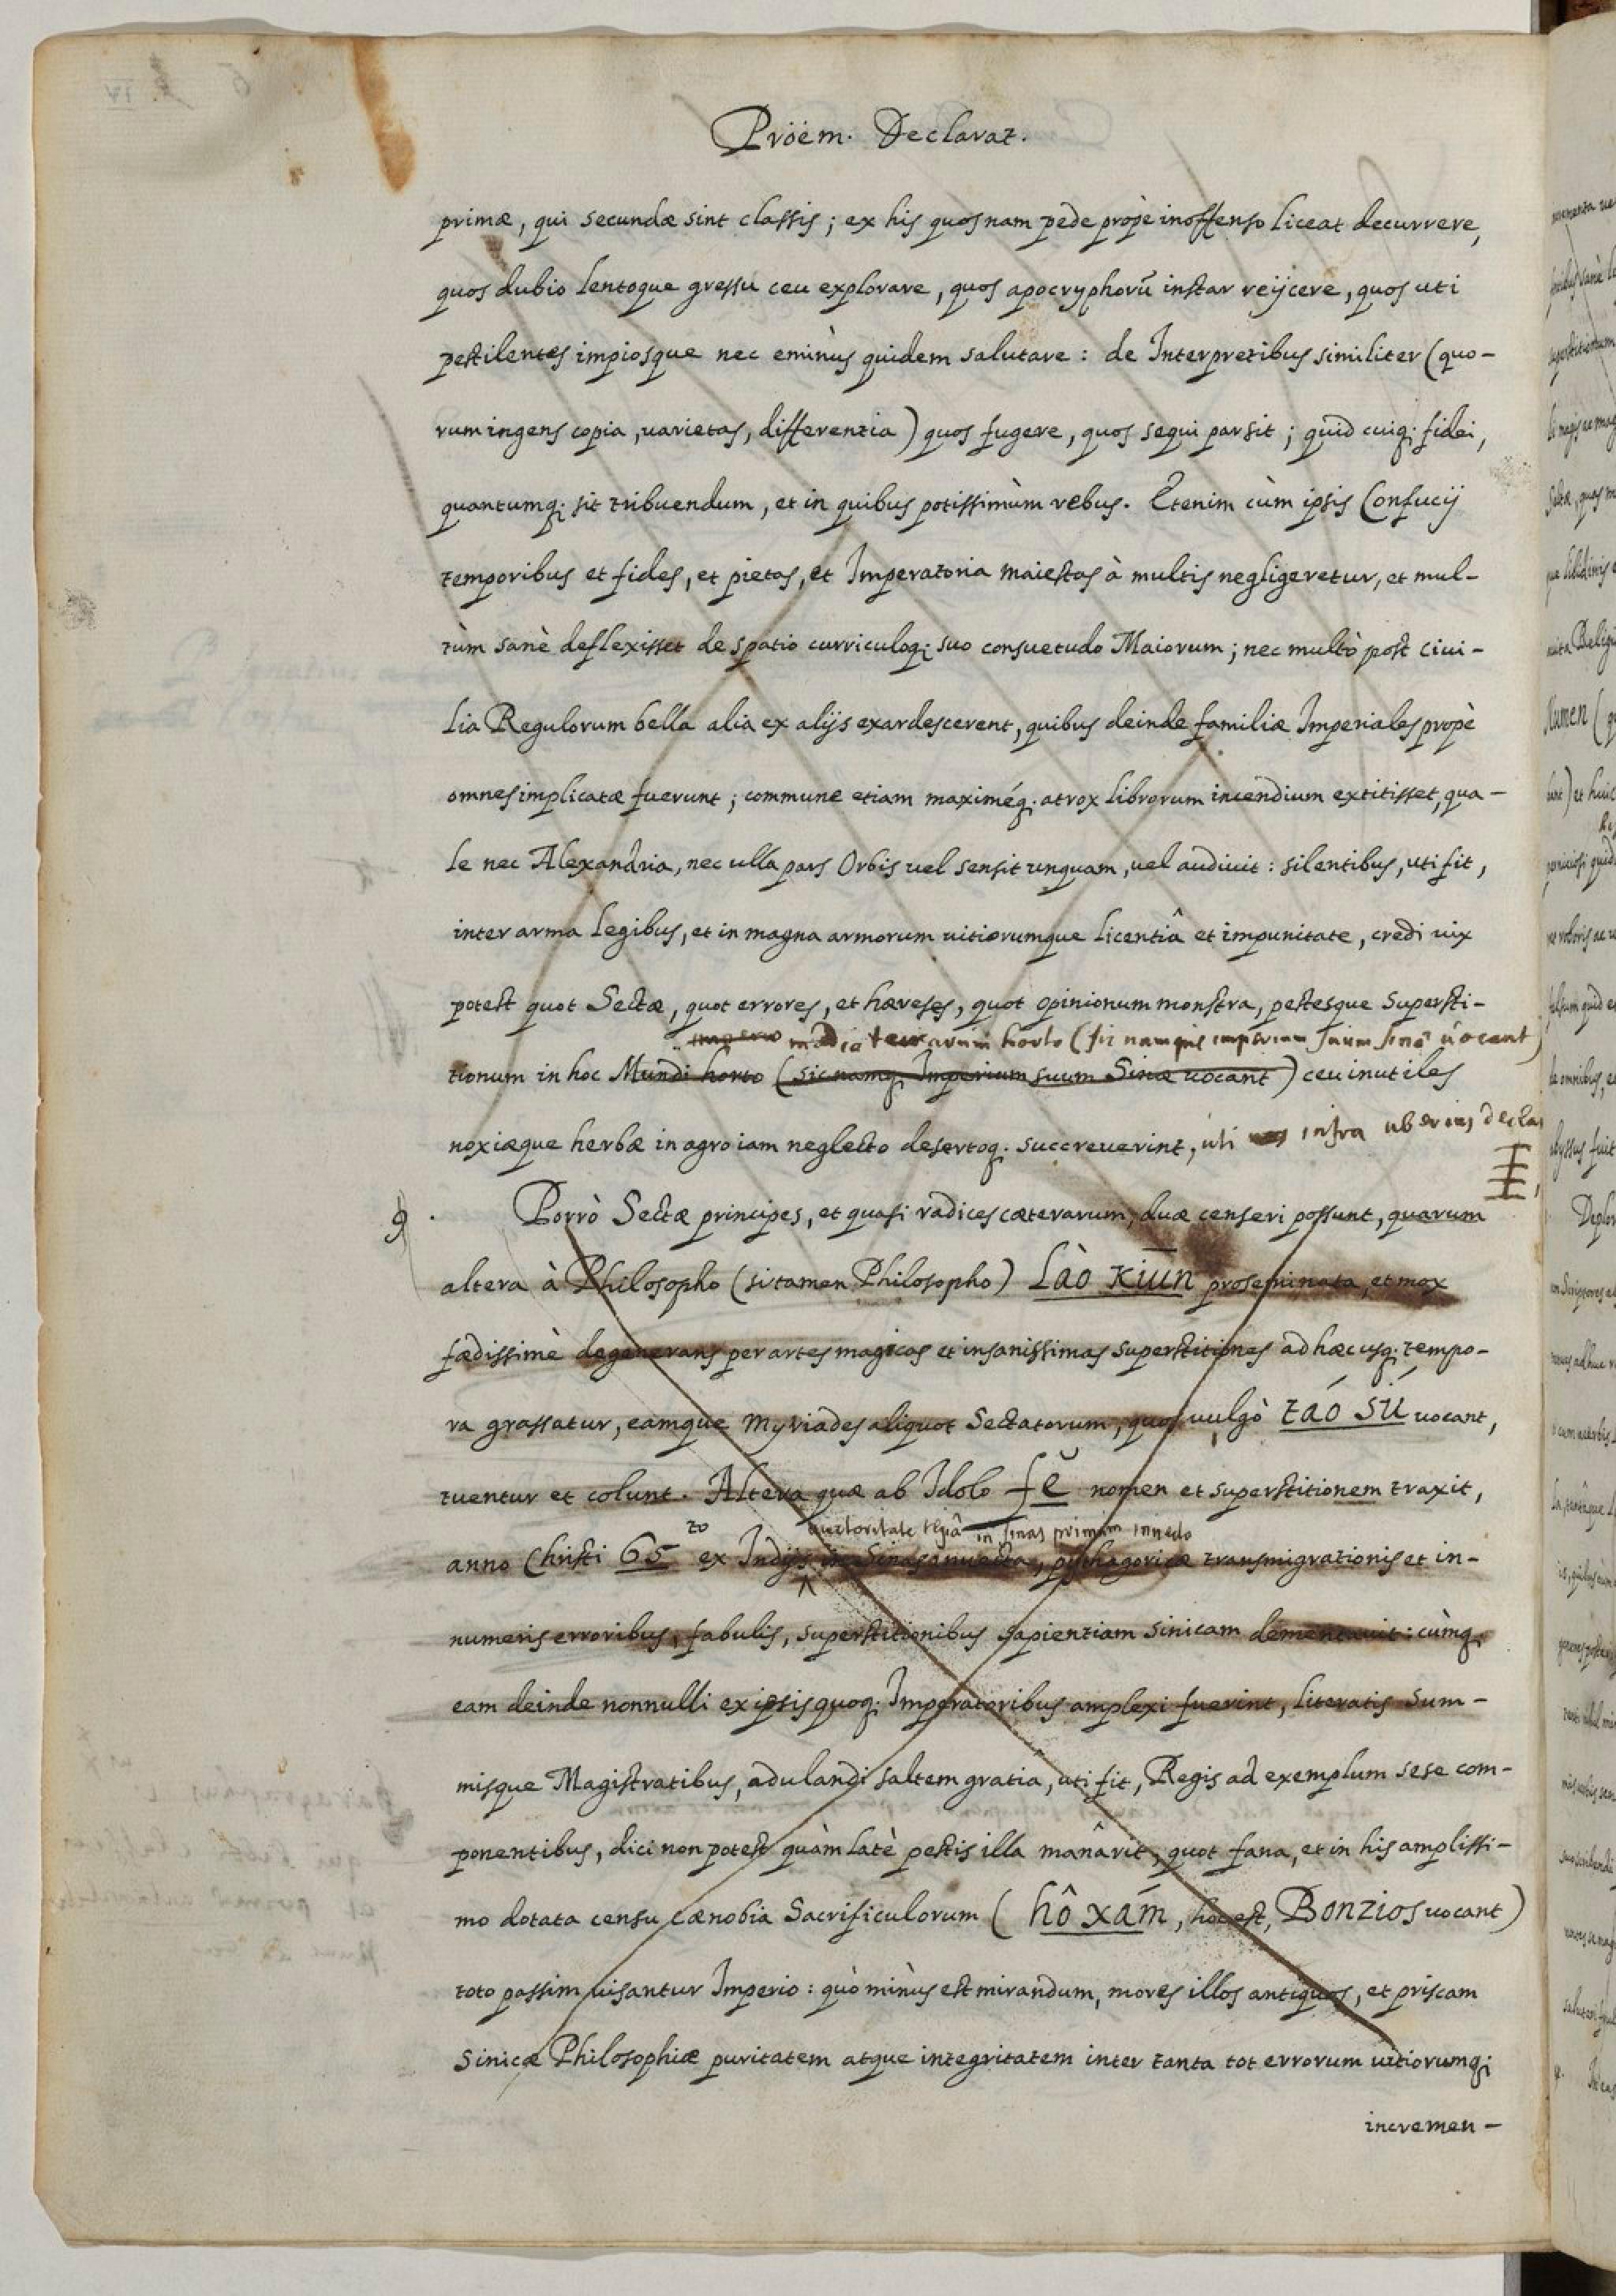 Pröem. Declarat.
primæ, qui secundæ sint classis; ex his quosnam pede propè inoffenso liceat decurrere,
quos dubio lentoque gressu ceu explorare, quos apocryphorū instar reijcere, quos uti
pestilentes impiosque nec eminùs quidem salutare: de Interpretibus similiter (quo-
rum ingens copia, uarietas, differentia) quos fugere, quos sequi par sit; quid cuiq; fidei,
quantumq; sit tribuendum, et in quibus potissimùm rebus. Etenim cùm ipsis Confucij
temporibus et fides, et pietas, et Imperatoria maiestas à multis negligeretur, et mul-
tùm sanè deflexisset de spatio curriculoq; suo consuetudo Maiorum; nec multò post ciui-
lia Regulorum bella alia ex alijs exardescerent, quibus deinde familiæ Imperiales propè
omnes implicatæ fuerunt; commune etiam maximéq; atrox librorum incendium extitisset, qua-
le nec Alexandria, nec ulla pars Orbis uel sensit unquam, uel audiuit: silentibus, uti fit,
inter arma legibus, et in magna armorum uitiorumque licentiâ et impunitate, credi uix
potest quot Sectæ, quot errores, et hæreses, quot opinionum monstra, pestesque Supersti-
media terrarum horto (sic namque imperium suum sinæ uocant)
tionum in hoc Mundi horto (sic namq; Imperium suum Sinæ uocant) ceu inutiles
noxiæque herbæ in agro iam neglecto desertoq; succreuerint, uti infra uberius declar
9. Porrò Sectæ principes, et quasi radices cæterarum, duæ censeri possunt, quarum
altera à Philosopho (si tamen Philosopho) Lào Kiūn proseminata, et mox
fœdissimè degenerans per artes magicas et insanissimas superstitiones ad hæc usq; tempo-
ra grassatur, eamque myriades aliquot Sectatorum, quos uulgò táo sú uocant,
tuentur et colunt. Altera quæ ab Idolo fĕ nomen et superstitionem traxit,
auctoritate regiâ in sinas primùm inuecto
anno Christi 65to ex Indijs in Sinas anuecta, pythagoricæ transmigrationis et in-
numeris erroribus, fabulis, superstitionibus sapientiam sinicam dementauit: cùmq;
eam deinde nonnulli ex ipsis quoq; Imperatoribus amplexi fuerint, literatis sum-
misque Magistratibus, adulandi saltem gratiâ, uti fit, Regis ad exemplum sese com-
ponentibus, dici non potest quàm latè pestis illa manârit, quot fana, et in his amplissi-
mo dotata censu cænobia Sacrificulorum (hô xám, hoc est, Bonzios uocant)
toto passim uisantur Imperio: quò minùs est mirandum, mores illos antiquos, et priscam
Sinicæ Philosophiæ puritatem atque integritatem inter tanta tot errorum uitiorumq;
incremen-